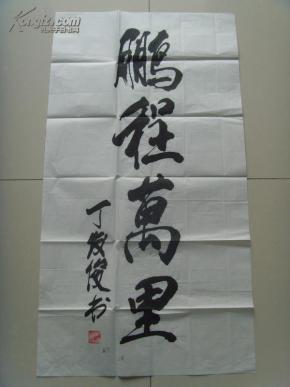 鹏程萬里
丁发俊书
Kongfz.com
孔夫子旧书网